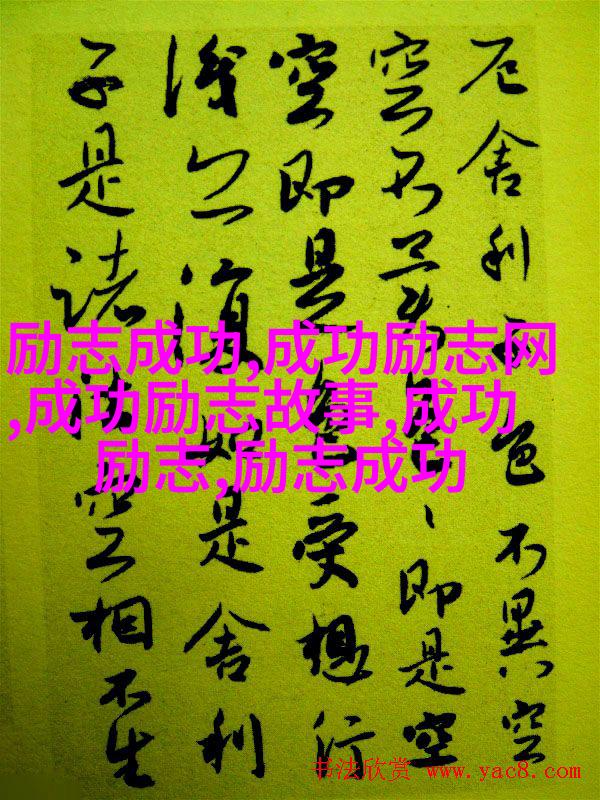 厄舍利子色不異空
空不異色、即是空
空即是色受想行
識亦復如是舍利
子是諸法空相不生
励志成功,成功励志网
,成功励志故事,成功
励志,励志成功
书法欣赏 www.yac8.com